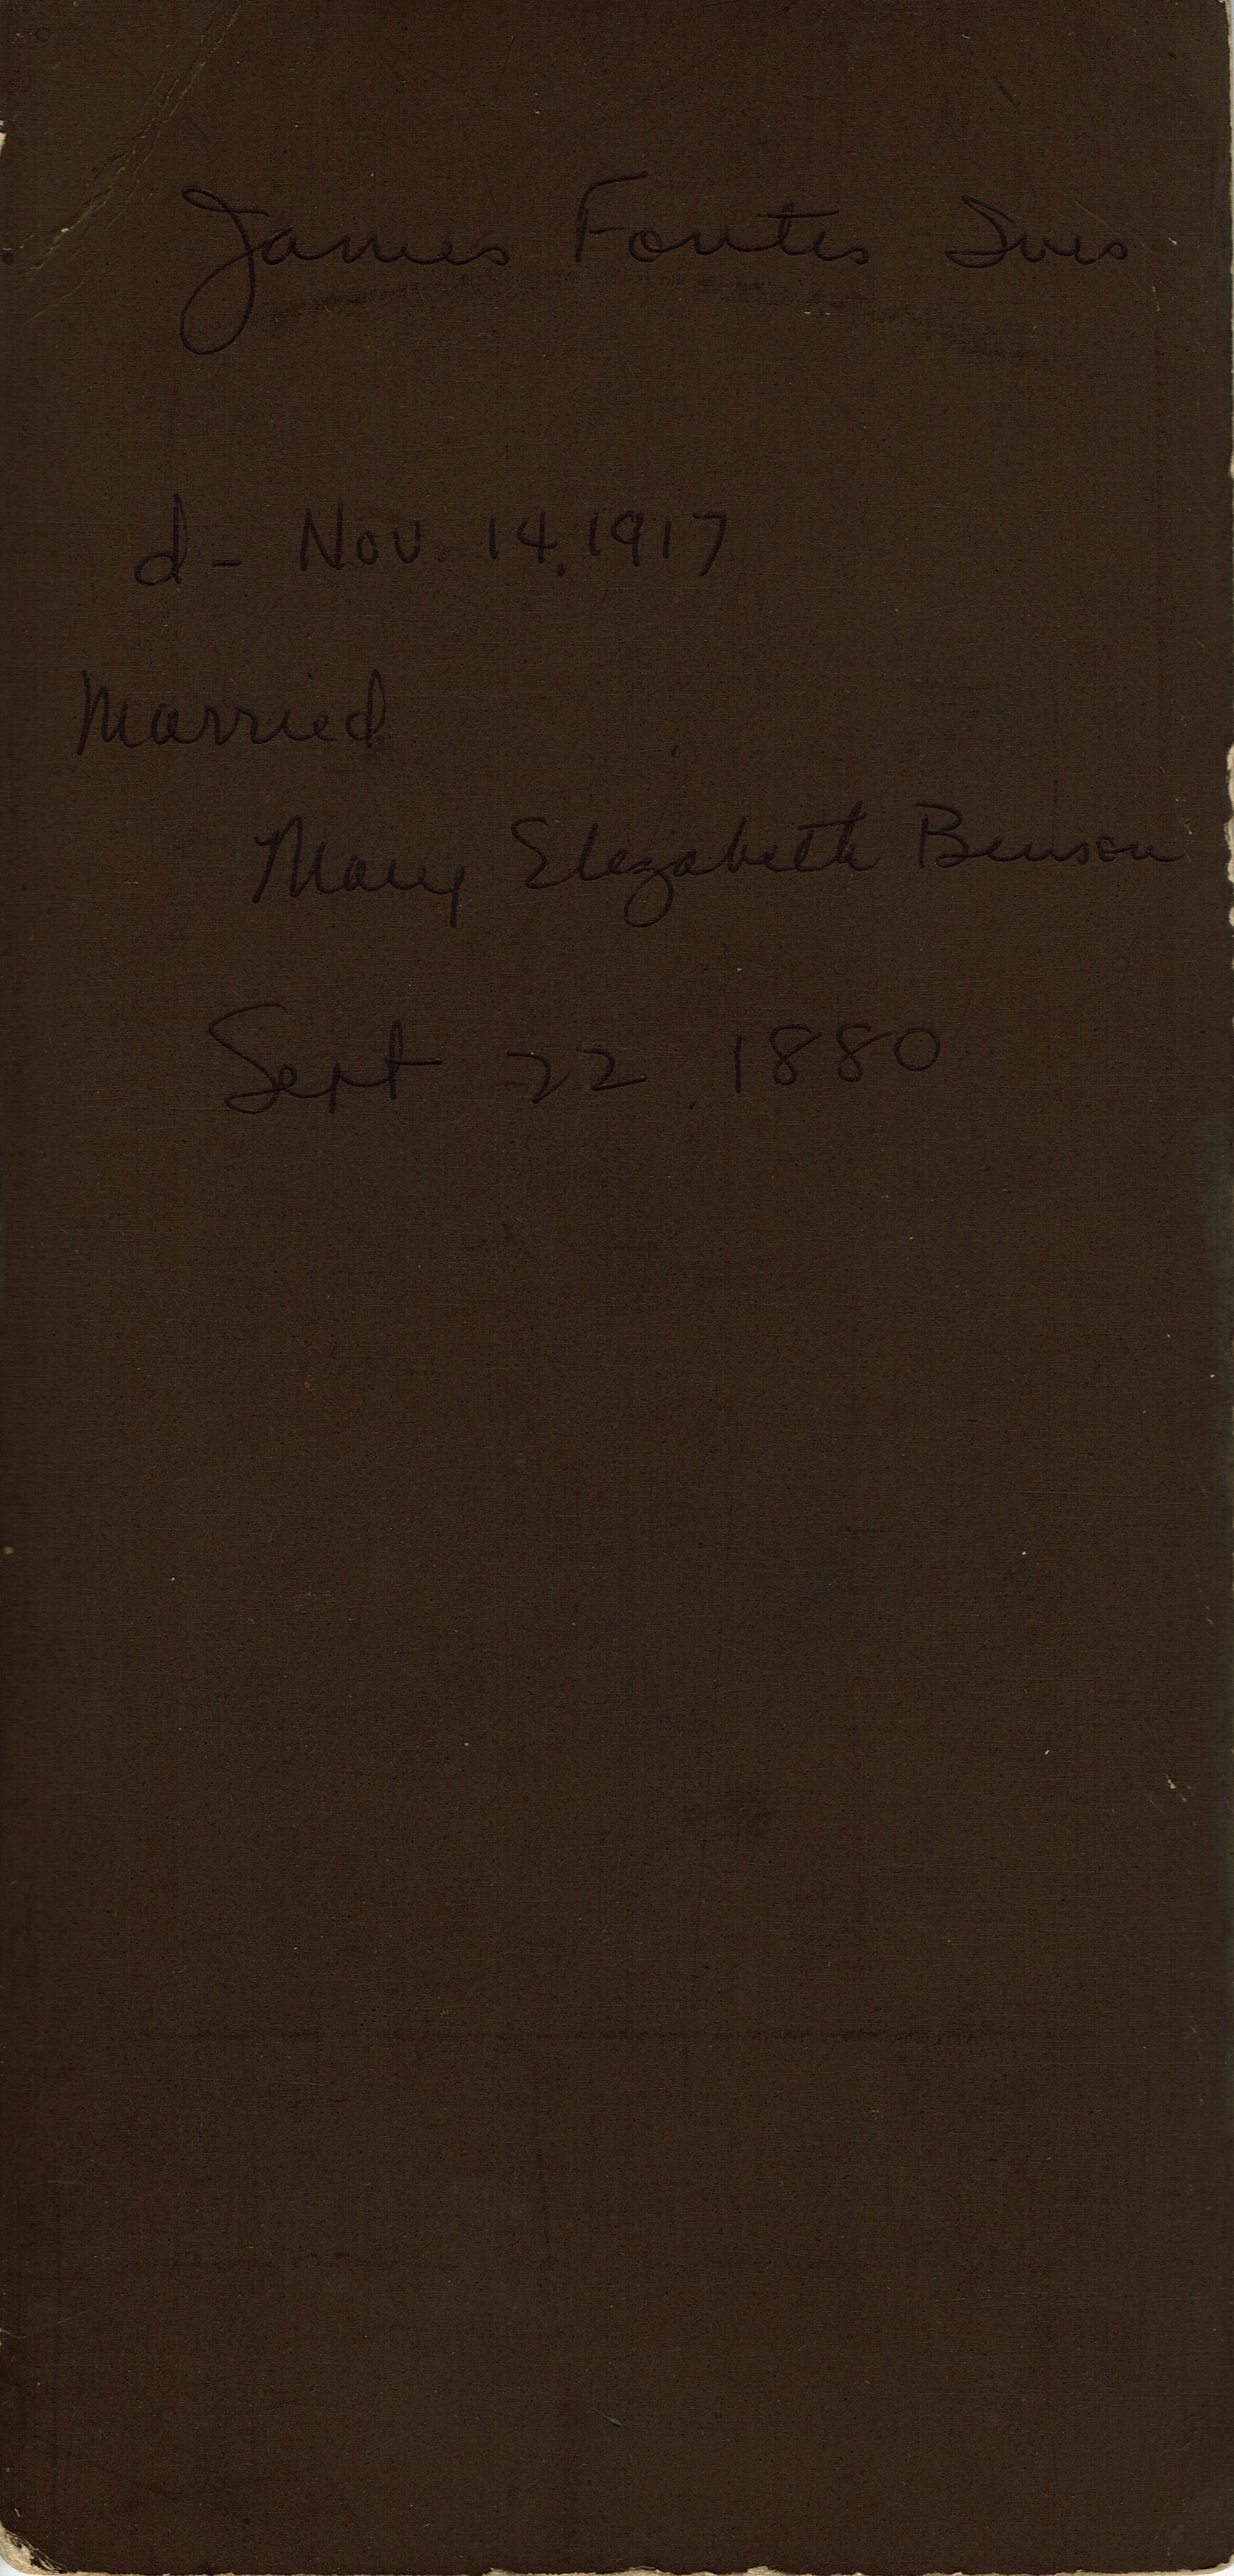 James Fontis Ives
d- Nov. 14, 1917
Married
Mary Elizabeth Benson
Sept 22, 1880